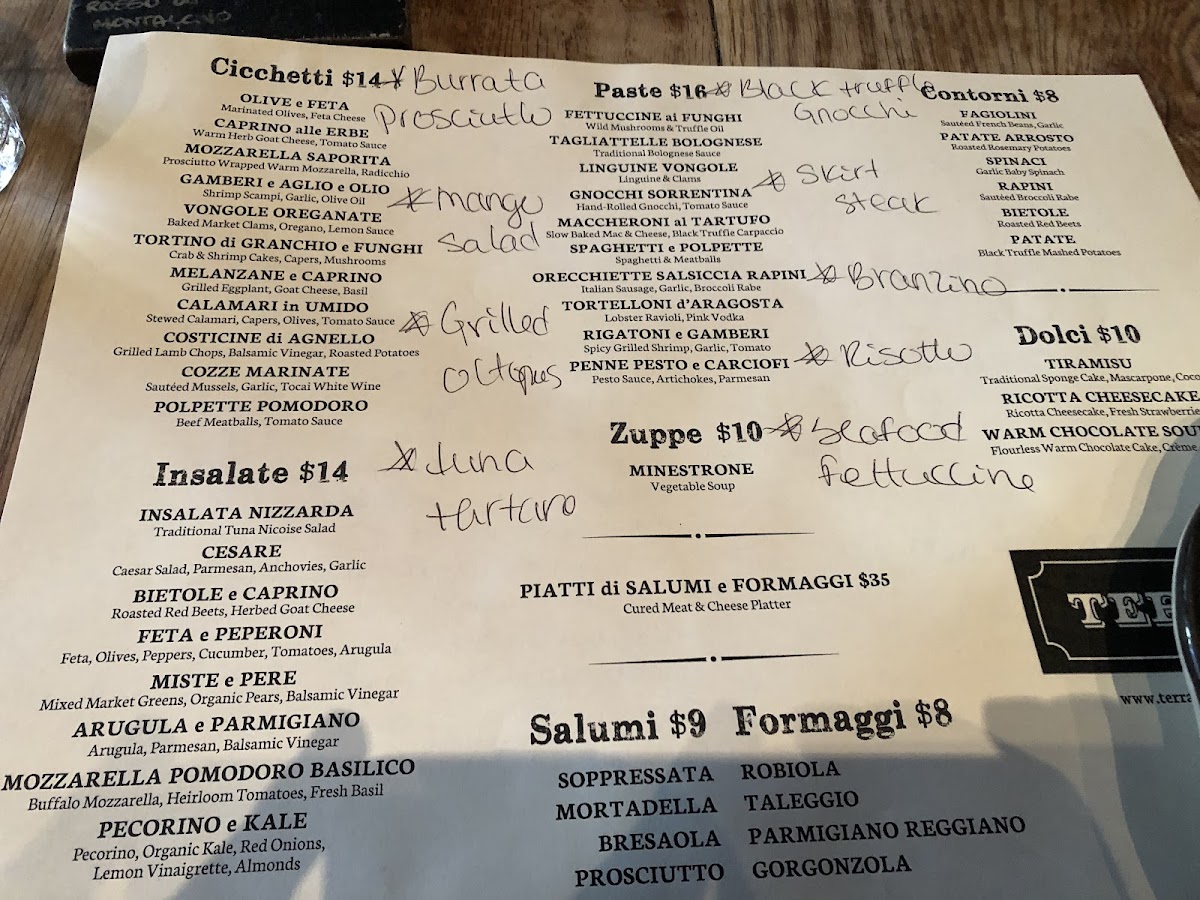 ROSSO DI
MONTALCINO
Cicchetti $14
* Burrata
Prosciutto
OLIVE e FETA
Marinated Olives, Feta Cheese
CAPRINO alle ERBE
Warm Herb Goat Cheese, Tomato Sauce
MOZZARELLA SAPORITA
Prosciutto Wrapped Warm Mozzarella, Radicchio
GAMBERI e AGLIO e OLIO
Shrimp Scampi, Garlic, Olive Oil
* mango
Salad
VONGOLE OREGANATE
Baked Market Clams, Oregano, Lemon Sauce
TORTINO di GRANCHIO e FUNGHI
Crab & Shrimp Cakes, Capers, Mushrooms
MELANZANE e CAPRINO
Grilled Eggplant, Goat Cheese, Basil
CALAMARI in UMIDO
Stewed Calamari, Capers, Olives, Tomato Sauce
* Grilled
octopus
COSTICINE di AGNELLO
Grilled Lamb Chops, Balsamic Vinegar, Roasted Potatoes
COZZE MARINATE
Sautéed Mussels, Garlic, Tocai White Wine
POLPETTE POMODORO
Beef Meatballs, Tomato Sauce
Insalate $14
* tuna
tartare
INSALATA NIZZARDA
Traditional Tuna Nicoise Salad
CESARE
Caesar Salad, Parmesan, Anchovies, Garlic
BIETOLE e CAPRINO
Roasted Red Beets, Herbed Goat Cheese
FETA e PEPERONI
Feta, Olives, Peppers, Cucumber, Tomatoes, Arugula
MISTE e PERE
Mixed Market Greens, Organic Pears, Balsamic Vinegar
ARUGULA e PARMIGIANO
Arugula, Parmesan, Balsamic Vinegar
MOZZARELLA POMODORO BASILICO
Buffalo Mozzarella, Heirloom Tomatoes, Fresh Basil
PECORINO e KALE
Pecorino, Organic Kale, Red Onions,
Lemon Vinaigrette, Almonds
Paste $16
* Black truffle
Gnocchi
FETTUCCINE ai FUNGHI
Wild Mushrooms & Truffle Oil
TAGLIATTELLE BOLOGNESE
Traditional Bolognese Sauce
LINGUINE VONGOLE
Linguine & Clams
GNOCCHI SORRENTINA
Hand-Rolled Gnocchi, Tomato Sauce
* Skirt
steak
MACCHERONI al TARTUFO
Slow Baked Mac & Cheese, Black Truffle Carpaccio
SPAGHETTI e POLPETTE
Spaghetti & Meatballs
ORECCHIETTE SALSICCIA RAPINI
Italian Sausage, Garlic, Broccoli Rabe
* Branzino
TORTELLONI d'ARAGOSTA
Lobster Ravioli, Pink Vodka
RIGATONI e GAMBERI
Spicy Grilled Shrimp, Garlic, Tomato
PENNE PESTO e CARCIOFI
Pesto Sauce, Artichokes, Parmesan
* Risotto
Zuppe $10
* seafood
fettuccine
MINESTRONE
Vegetable Soup
PIATTI di SALUMI e FORMAGGI $35
Cured Meat & Cheese Platter
Salumi $9
SOPPRESSATA
MORTADELLA
BRESAOLA
PROSCIUTTO
Formaggi $8
ROBIOLA
TALEGGIO
PARMIGIANO REGGIANO
GORGONZOLA
Contorni $8
FAGIOLINI
Sautéed French Beans, Garlic
PATATE ARROSTO
Roasted Rosemary Potatoes
SPINACI
Garlic Baby Spinach
RAPINI
Sautéed Broccoli Rabe
BIETOLE
Roasted Red Beets
PATATE
Black Truffle Mashed Potatoes
Dolci $10
TIRAMISU
Traditional Sponge Cake, Mascarpone, Coco
RICOTTA CHEESECAKE
Ricotta Cheesecake, Fresh Strawberrie
WARM CHOCOLATE SOU
Flourless Warm Chocolate Cake, Crème
TER
www.terra